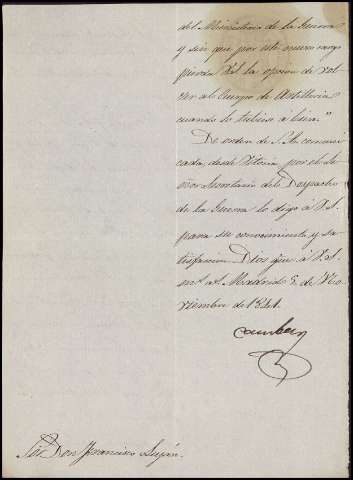 del Ministerio de la Guerra
y sin que por este nuevo cargo
pierda V.S. la opcion de vol
ver al Cuerpo de Artilleria
cuando lo tubiese á bien."
De orden de S.A. comuni
cada desde Vitoria por el Se
ñor Secretario del Despacho
de la Guerra lo digo á V.S.
para su conocimiento y sa
tisfaccion. Dios gue. á V.S.
ms. as. Madrid 5 de No
viembre de 1841.
Sor. Don Francisco Luján.